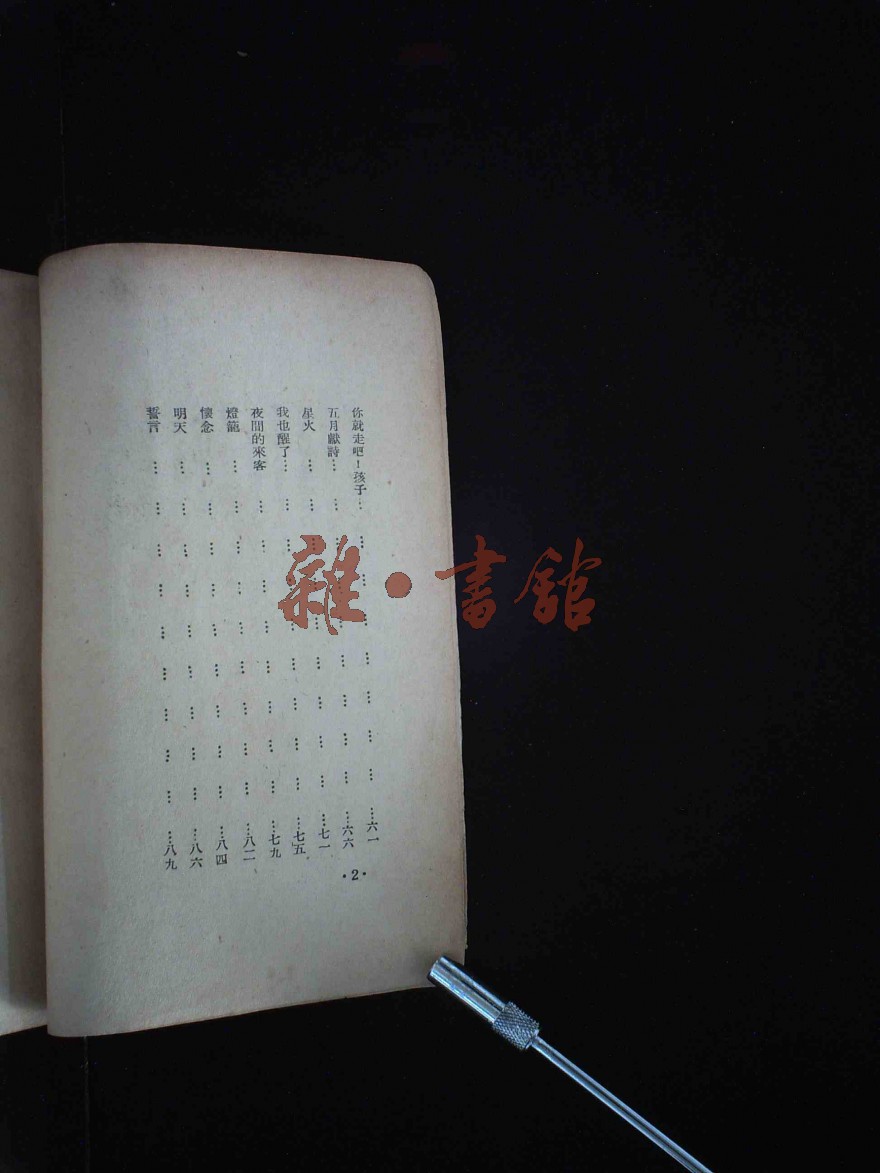 你就走吧！孩子……六一
五月獻詩……六六
星火……七一
我也醒了……七五
夜間的來客……七九
燈籠……八二
懷念……八四
明天……八六
誓言……八九
·2·
雜·書館